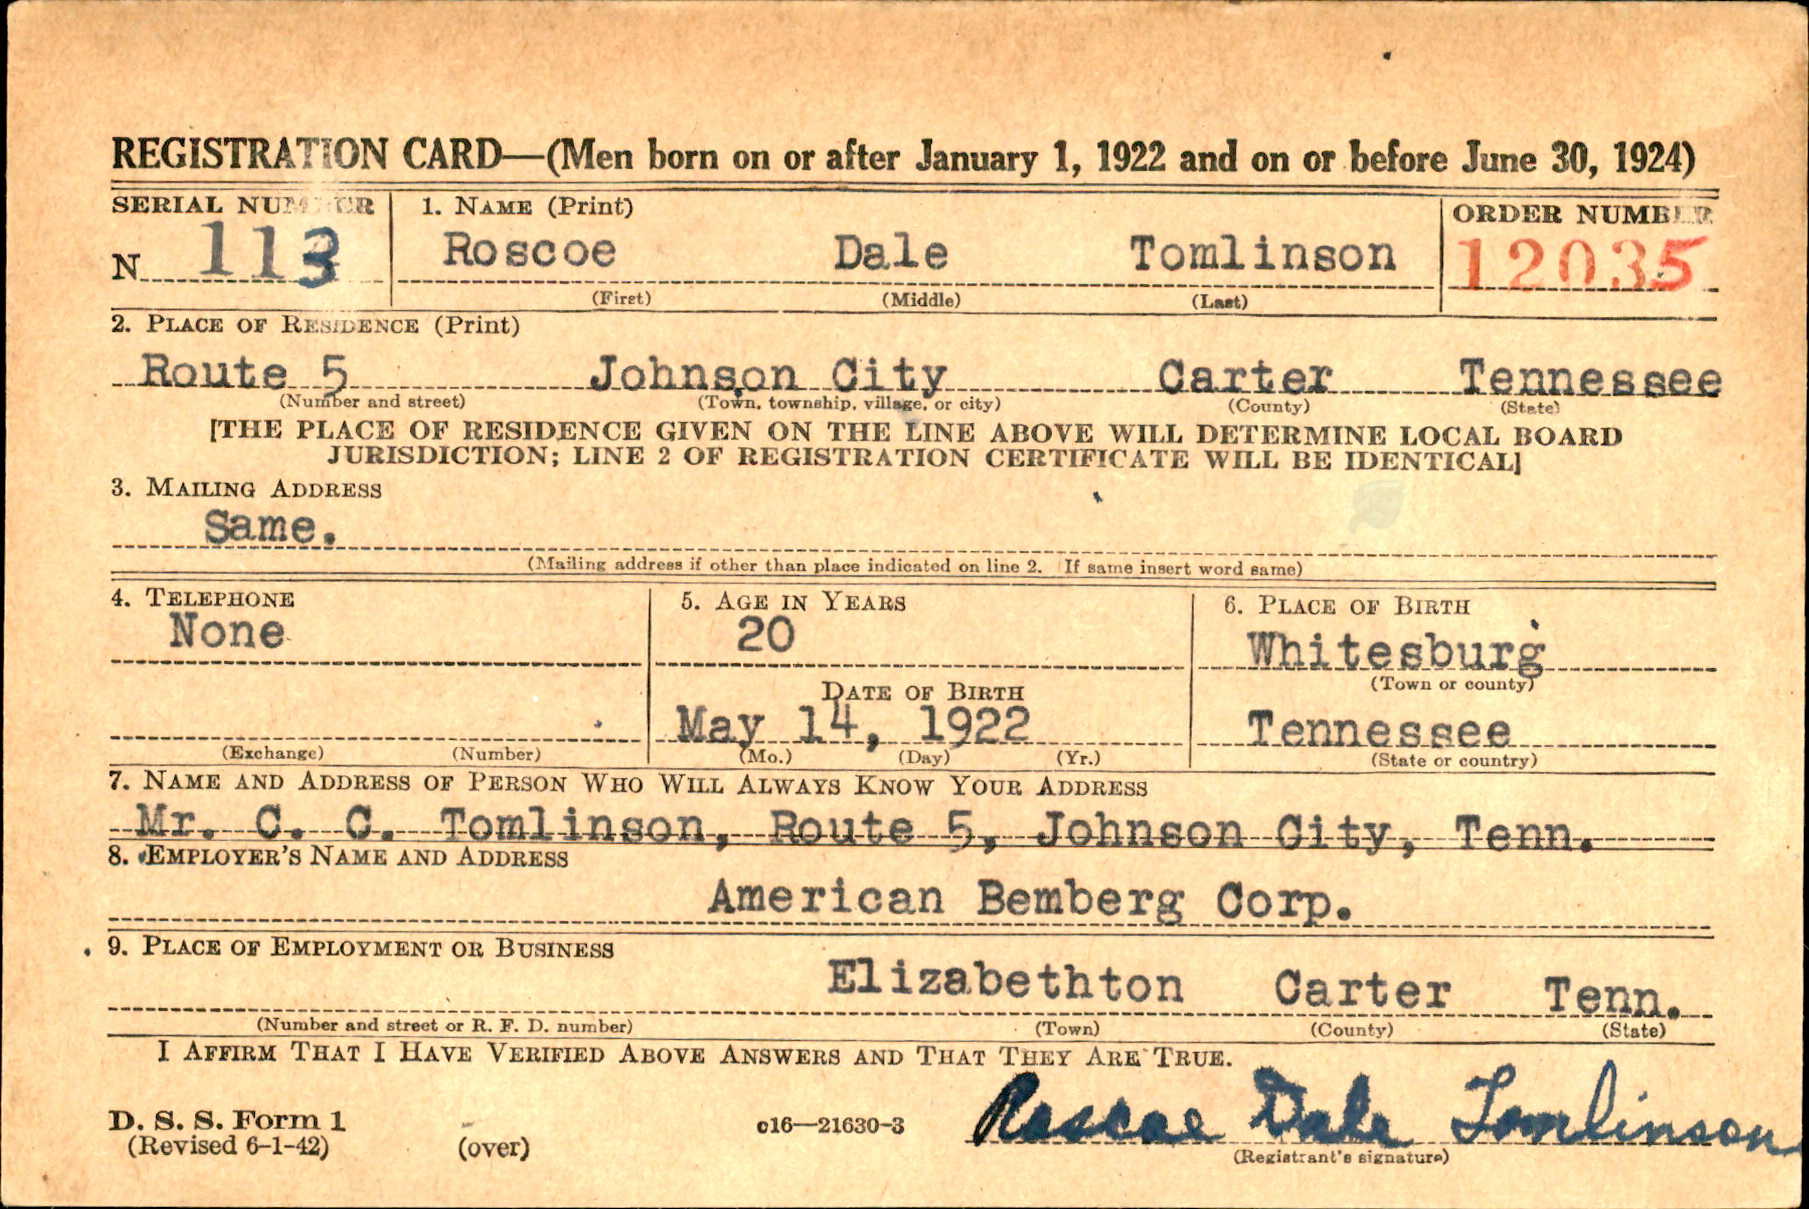 REGISTRATION CARD—(Men born on or after January 1, 1922 and on or before June 30, 1924)
SERIAL NUMBER
1. NAME (Print)
ORDER NUMBER
N 113
Roscoe Dale Tomlinson
12035
(First) (Middle) (Last)
2. PLACE OF RESIDENCE (Print)
Route 5 Johnson City Carter Tennessee
(Number and street) (Town, township, village, or city) (County) (State)
[THE PLACE OF RESIDENCE GIVEN ON THE LINE ABOVE WILL DETERMINE LOCAL BOARD
JURISDICTION; LINE 2 OF REGISTRATION CERTIFICATE WILL BE IDENTICAL]
3. MAILING ADDRESS
Same.
(Mailing address if other than place indicated on line 2. If same insert word same)
4. TELEPHONE
None
(Exchange) (Number)
5. AGE IN YEARS
20
DATE OF BIRTH
May 14, 1922
(Mo.) (Day) (Yr.)
6. PLACE OF BIRTH
Whitesburg
(Town or county)
Tennessee
(State or country)
7. NAME AND ADDRESS OF PERSON WHO WILL ALWAYS KNOW YOUR ADDRESS
Mr. C. C. Tomlinson, Route 5, Johnson City, Tenn.
8. EMPLOYER'S NAME AND ADDRESS
American Bemberg Corp.
9. PLACE OF EMPLOYMENT OR BUSINESS
Elizabethton Carter Tenn.
(Number and street or R. F. D. number) (Town) (County) (State)
I AFFIRM THAT I HAVE VERIFIED ABOVE ANSWERS AND THAT THEY ARE TRUE.
D. S. S. Form 1
(Revised 6-1-42) (over)
c16—21630-3
Roscoe Dale Tomlinson
(Registrant's signature)